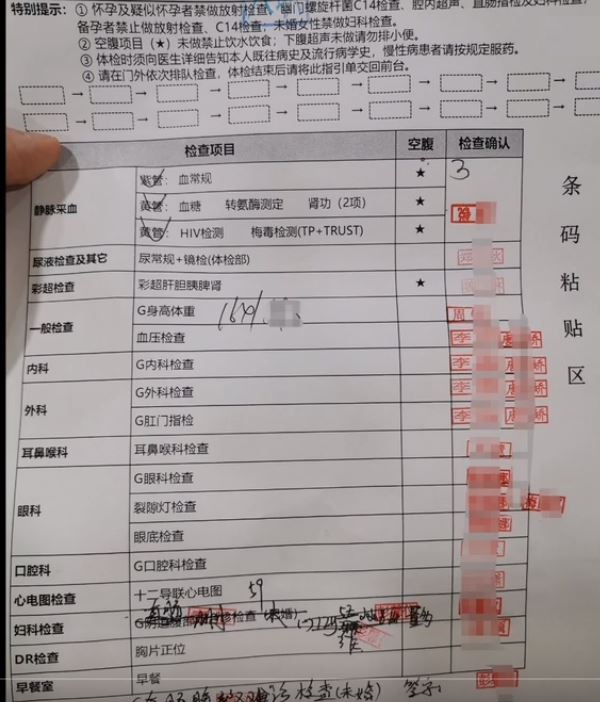 特别提示：① 怀孕及疑似怀孕者禁做放射检查、幽门螺旋杆菌C14检查、腔内超声、直肠指检及妇科检查；
备孕者禁止做放射检查、C14检查；未婚女性禁做妇科检查。
② 空腹项目（★）未做禁止饮水饮食；下腹超声未做请勿排小便。
③ 体检时须向医生详细告知本人既往病史及流行病学史，慢性病患者请按规定服药。
④ 请在门外依次排队检查，体检结束后请将此指引单交回前台。
检查项目 空腹 检查确认
静脉采血 紫管：血常规 ★ 3
黄管：血糖 转氨酶测定 肾功（2项） ★
黄管：HIV检测 梅毒检测(TP+TRUST) ★
尿液检查及其它 尿常规+镜检(体检部)
彩超检查 彩超肝胆胰脾肾 ★
一般检查 G身高体重 周
血压检查 李 娇
内科 G内科检查 李 娇
外科 G外科检查 李 娇
G肛门指检 李 娇
耳鼻喉科 耳鼻喉科检查
眼科 G眼科检查
裂隙灯检查
眼底检查
口腔科 G口腔科检查
心电图检查 十二导联心电图 59
妇科检查
DR检查 胸片正位
早餐室 早餐
检查(未婚) 签字
条码粘贴区